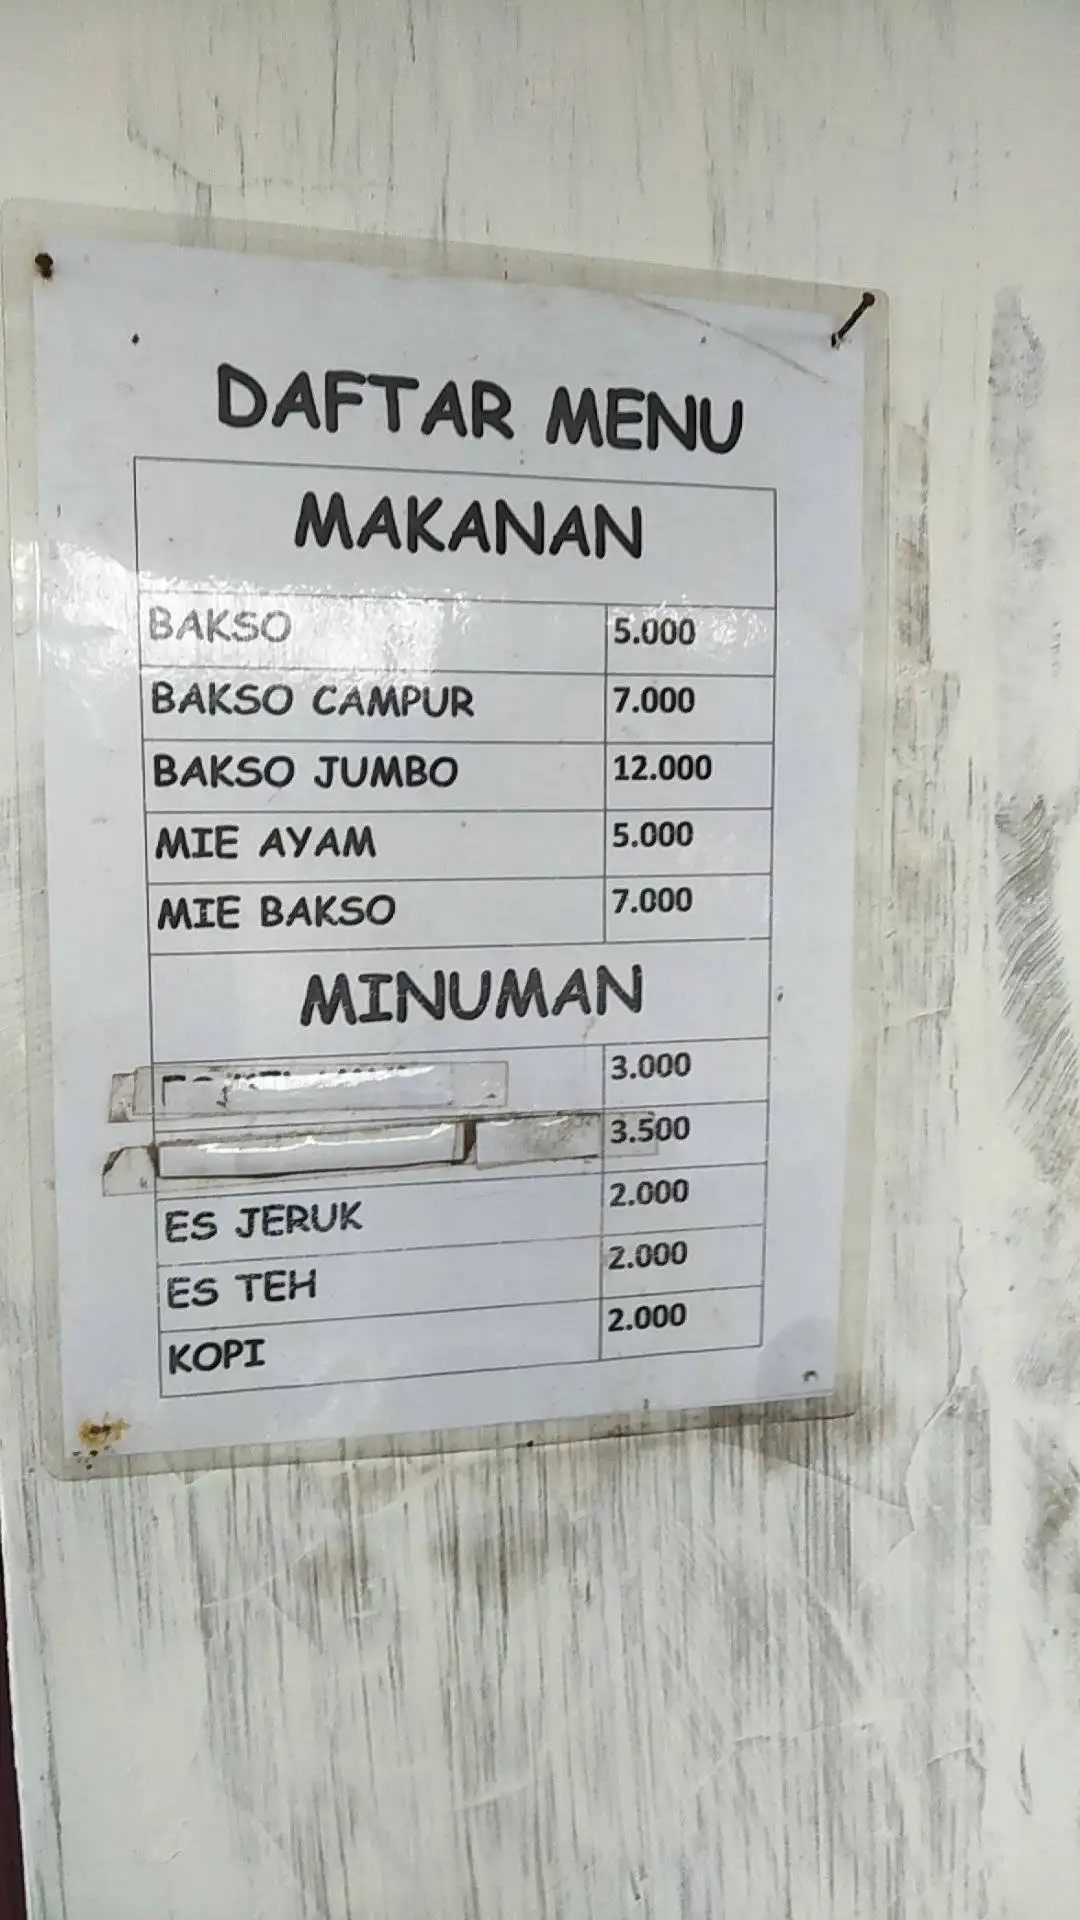 DAFTAR MENU
MAKANAN
BAKSO 5.000
BAKSO CAMPUR 7.000
BAKSO JUMBO 12.000
MIE AYAM 5.000
MIE BAKSO 7.000
MINUMAN
3.000
3.500
ES JERUK 2.000
ES TEH 2.000
KOPI 2.000